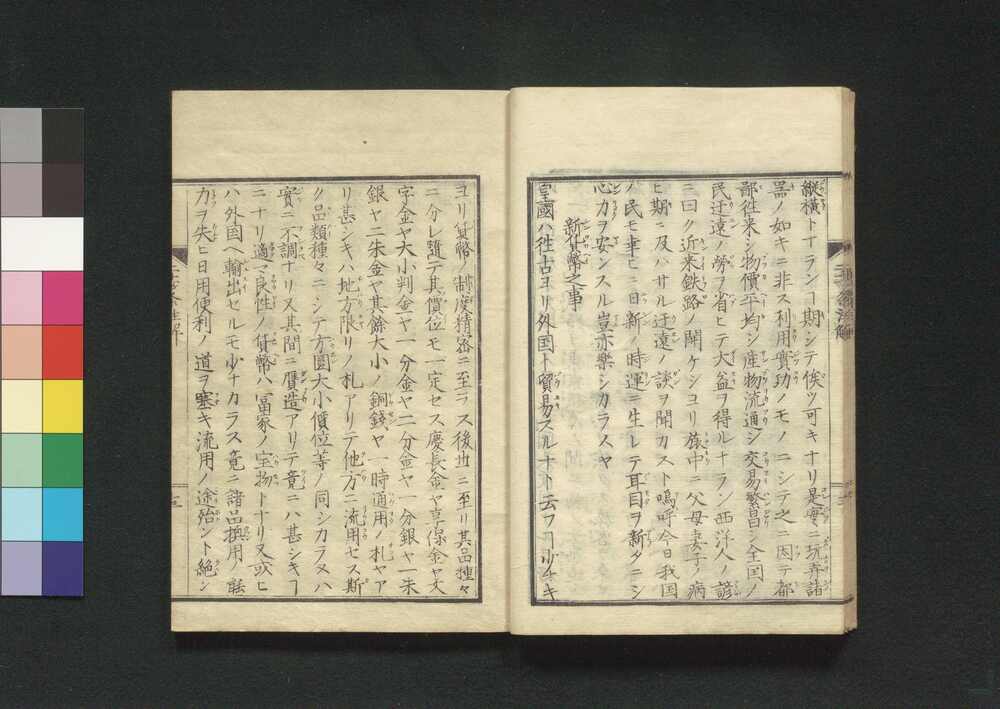 縦横トナランコ期シテ俟ツ可キナリ是實ニ玩弄諸
器ノ如キニ非ス利用實功ノモノニシテ之ニ因テ都
鄙往来シ物價平均シ産物流通シ交易繁昌シ全国ノ
民迂遠ノ勞ヲ省ヒテ大益ヲ得ルナラン西洋人ノ諺
ニ曰ク近来鉄路ノ開ケシヨリ旅中ニ父母妻子ノ病
ヒ期ニ及ハサル迂遠ノ談ヲ聞カスト嗚呼今日我国
ノ民モ幸ヒニ日新ノ時運ニ生レテ耳目ヲ新タニシ
心力ヲ安ンスル豈亦樂シカラスヤ
新貨幣之事
皇國ハ往古ヨリ外國ト貿易スルナト云フコ少ナキ
ヨリ貨幣ノ制度精密ニ至ラス後世ニ至リ其品種々
ニ分レ隨テ其價位モ一定セス慶長金ヤ享保金ヤ文
字金ヤ大小判金ヤ一分金ヤ二分金ヤ一分銀ヤ一朱
銀ヤ二朱金ヤ其餘大小ノ銅錢ヤ一時通用ノ札ヤア
リ甚シキハ地方限リノ札アリテ他方ニ流用セス斯
ク品類種々ニシテ方圓大小價位等ノ同シカラヌハ
實ニ不調ナリ又其間ニ贋造アリテ竟ニハ甚シキコ
ニナリ適マ良性ノ貨幣ハ冨家ノ宝物トナリ又或ヒ
ハ外国ヘ輸出セルモ少ナカラス竟ニ諸品換用ノ能
力ヲ失ヒ日用便利ノ道ヲ塞キ流用ノ途殆ント絶シ